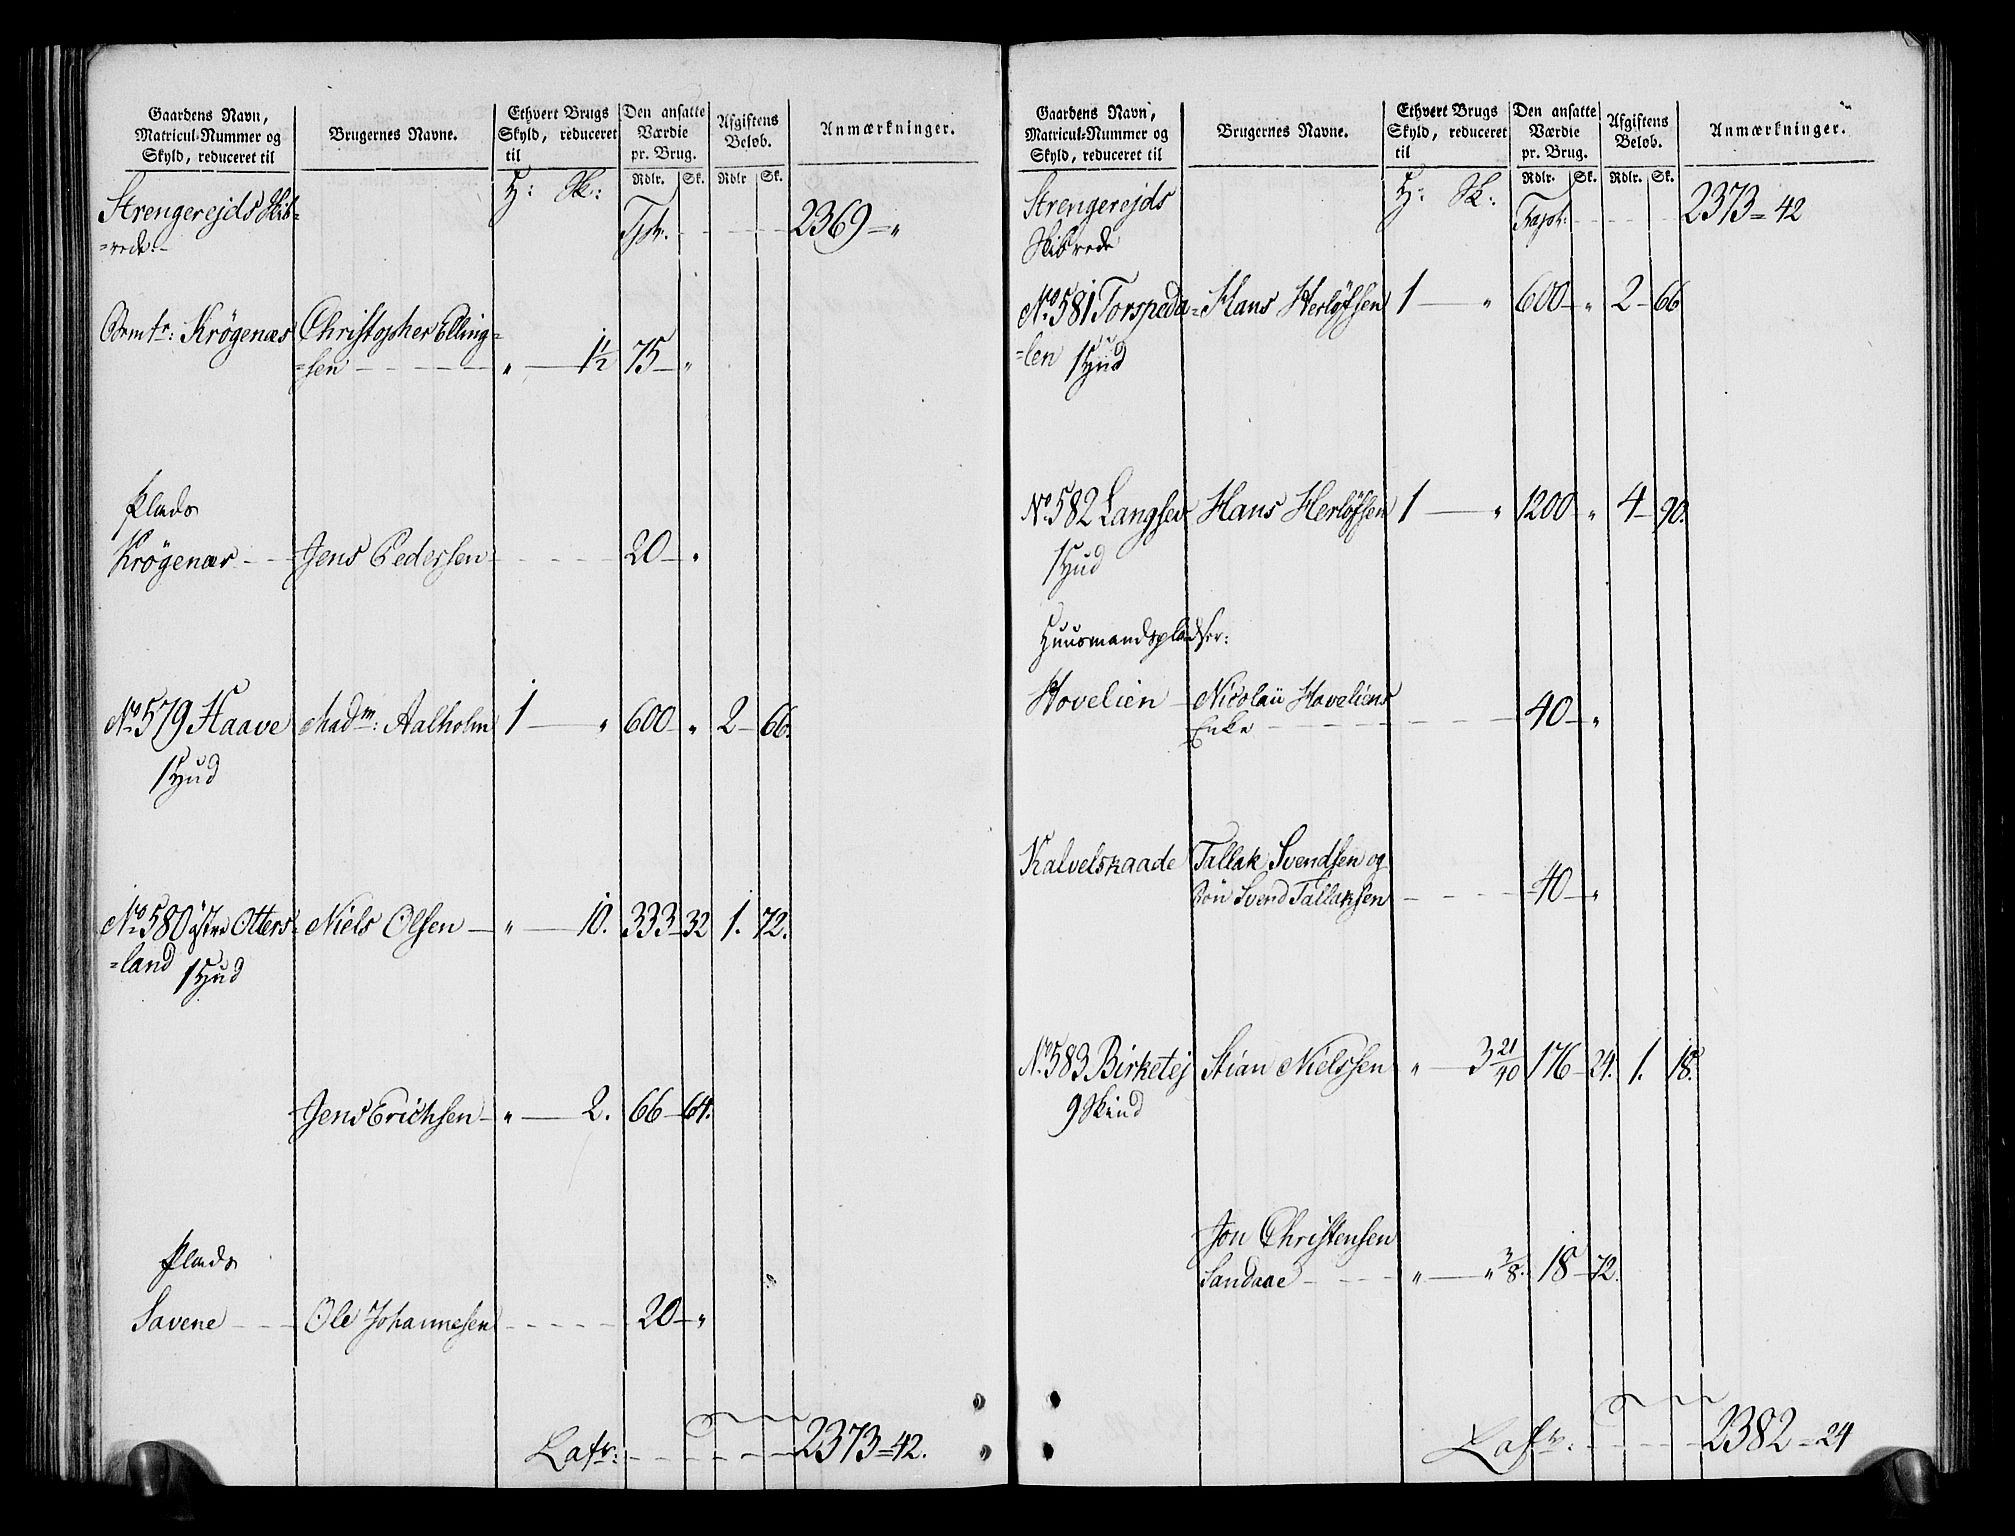 Gaardens Navn, Matricul-Nummer og Skyld, reduceret til | Brugernes Navne. | Ethvert Brugs Skyld, reduceret til | Den ansatte Værdie pr. Brug. | Afgiftens Beløb. | Anmærkninger.
H: Sk: | Rdlr. Sk. | Rdlr Sk.
Strengerejds Skib=
=rede. Tspt. 2369 — „
Krögenæs Christopher Elling=
=sen „ — 1½ 75 — „
Plads
Krögenæs Jens Pedersen 20 — „
No. 579 Haave Madm: Aalholm 1 — „ 600 — „ 2 — 66.
1 Hud
No. 580 östre Otters= Niels Olsen „ — 10. 333 — 32 1. 72.
=land 1 Hud
Jens Erichsen „ — 2. 66 — 64.
Plads
Savene Ole Johannesen 20 — „
Latr: 2373 = 42.
Gaardens Navn, Matricul-Nummer og Skyld, reduceret til | Brugernes Navne. | Ethvert Brugs Skyld, reduceret til | Den ansatte Værdie pr. Brug. | Afgiftens Beløb. | Anmærkninger.
H: Sk: | Rdlr. Sk. | Rdlr. Sk.
Strengerejds
Skibrede Trspt: 2373 = 42
No. 581 Torspeda= Hans Herløfsen 1 — „ 600 — „ 2 — 66
=len 1 Hud
No. 582 Langsev Hans Herløfsen 1 — „ 1200 „ 4 — 90.
1 Hud
Huusmandspladser:
Hovelien Nicolaii Hoveliens
Enke 40 — „
Kalvelskaade Tallak Svendsen og
Sön Svend Tallaksen 40 — „
No. 583 Birketej Stian Nielssen „ — 3 21/40 176 — 24. 1. 18.
9 Skind
Jon Christensen
Sandaae „ — „ 3/8. 18 — 72.
Latr: 2382 = 24